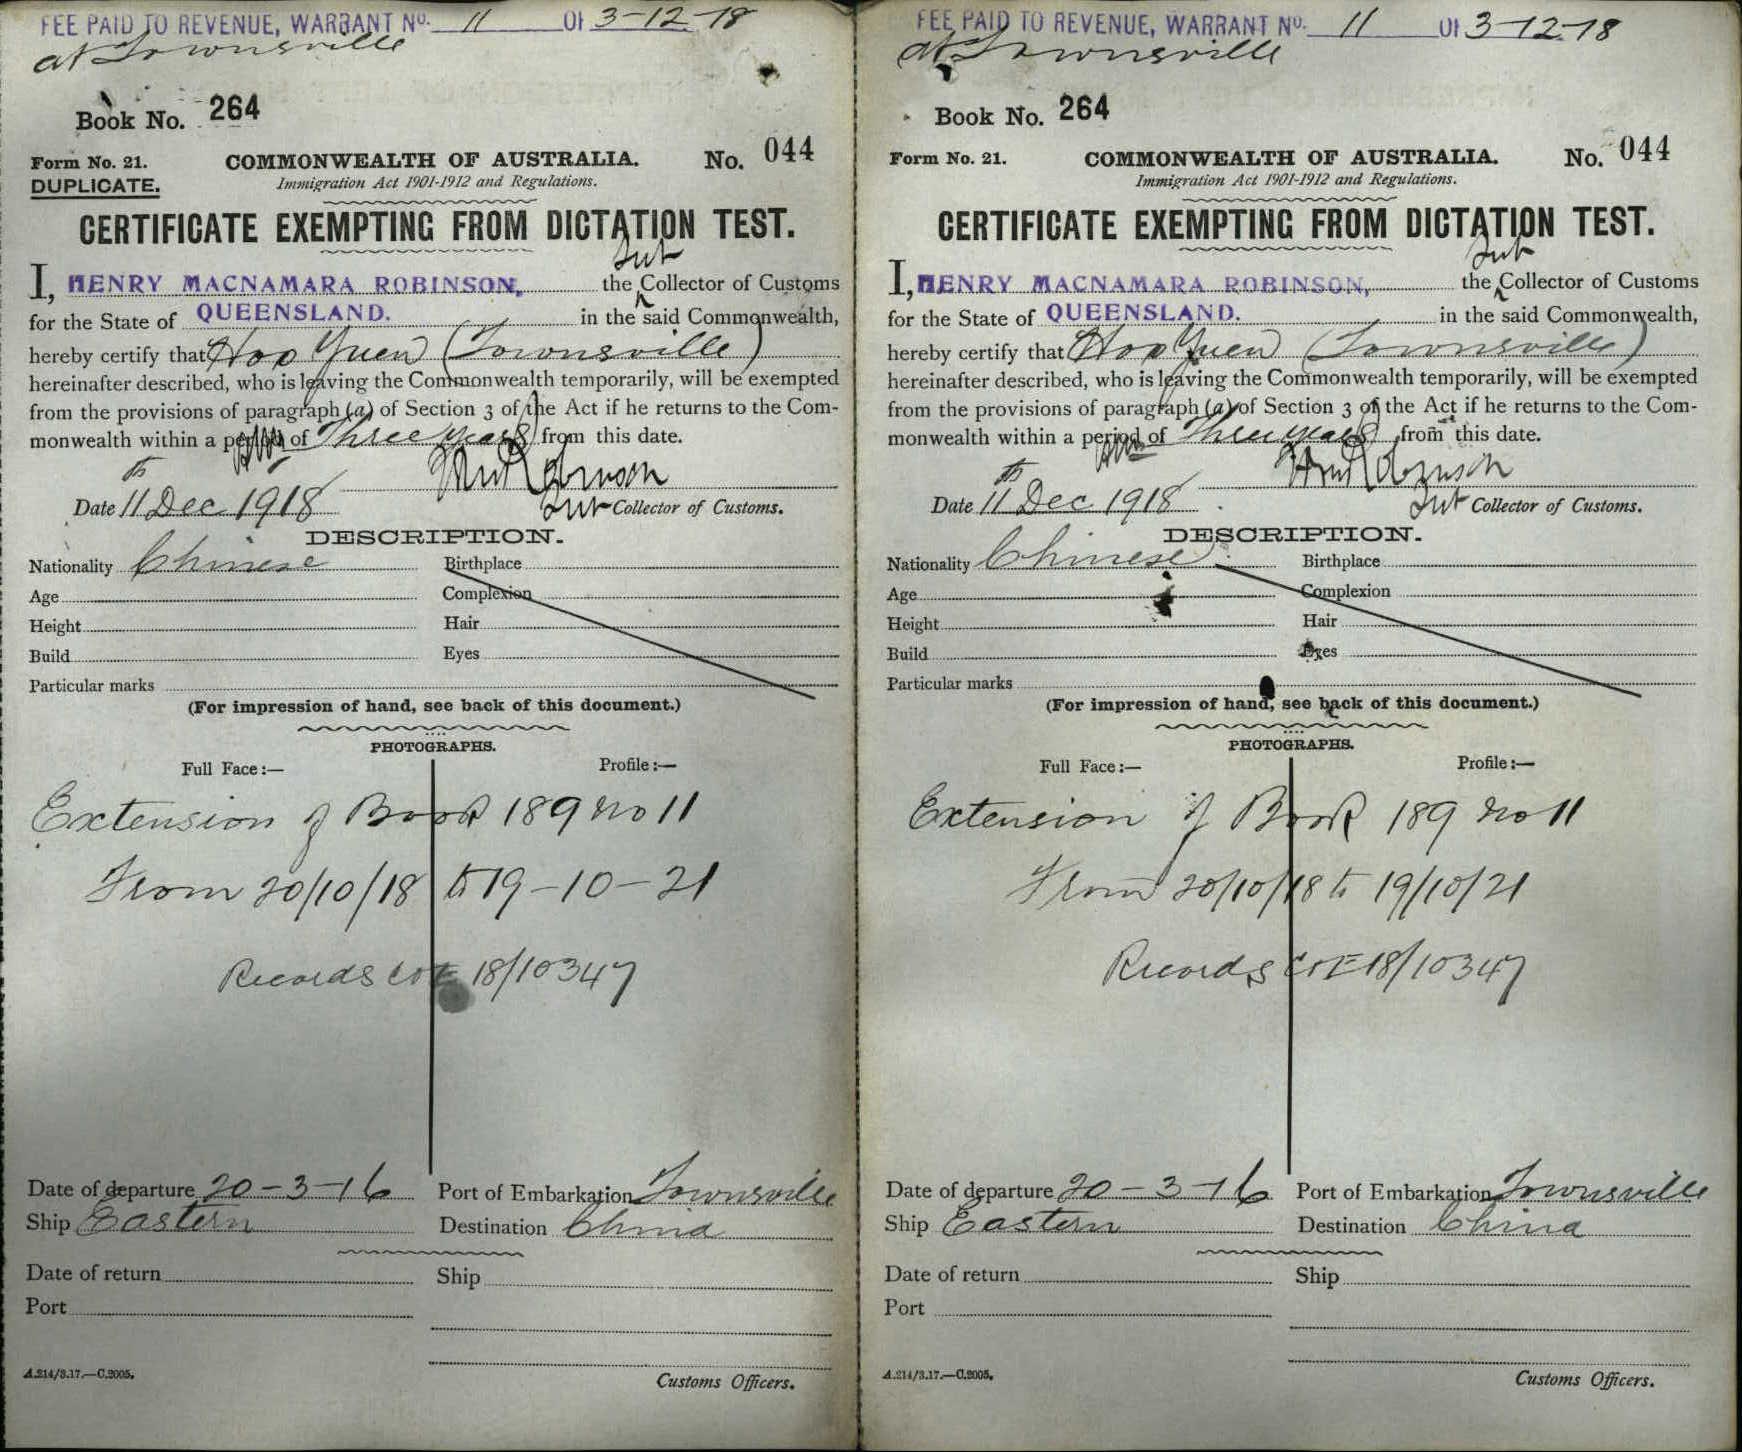 FEE PAID TO REVENUE, WARRANT No. 11 Of 3-12-18
at Townsville
Book No. 264
Form No. 21. COMMONWEALTH OF AUSTRALIA. No. 044
DUPLICATE. Immigration Act 1901-1912 and Regulations.
CERTIFICATE EXEMPTING FROM DICTATION TEST.
Sub
I, HENRY MACNAMARA ROBINSON, the Collector of Customs
for the State of QUEENSLAND. in the said Commonwealth,
hereby certify that Hop Yuen (Townsville)
hereinafter described, who is leaving the Commonwealth temporarily, will be exempted
from the provisions of paragraph (a) of Section 3 of the Act if he returns to the Com-
monwealth within a period of Three years from this date.
HMRobinson
Date 11th Dec 1918 Sub Collector of Customs.
DESCRIPTION.
Nationality Chinese Birthplace
Age Complexion
Height Hair
Build Eyes
Particular marks
(For impression of hand, see back of this document.)
PHOTOGRAPHS.
Full Face:— Profile:—
Extension of Book 189 no 11
From 20/10/18 to 19-10-21
Records 18/10347
Date of departure 20-3-16 Port of Embarkation Townsville
Ship Eastern Destination China
Date of return Ship
Port
A.214/3.17.—C.2005.
Customs Officers.
FEE PAID TO REVENUE, WARRANT No. 11 Of 3-12-18
at Townsville
Book No. 264
Form No. 21. COMMONWEALTH OF AUSTRALIA. No. 044
Immigration Act 1901-1912 and Regulations.
CERTIFICATE EXEMPTING FROM DICTATION TEST.
Sub
I, HENRY MACNAMARA ROBINSON, the Collector of Customs
for the State of QUEENSLAND. in the said Commonwealth,
hereby certify that Hop Yuen (Townsville)
hereinafter described, who is leaving the Commonwealth temporarily, will be exempted
from the provisions of paragraph (a) of Section 3 of the Act if he returns to the Com-
monwealth within a period of Three years from this date.
HMRobinson
Date 11th Dec 1918 Sub Collector of Customs.
DESCRIPTION.
Nationality Chinese Birthplace
Age Complexion
Height Hair
Build Eyes
Particular marks
(For impression of hand, see back of this document.)
PHOTOGRAPHS.
Full Face:— Profile:—
Extension of Book 189 no 11
From 20/10/18 to 19/10/21
Records 18/10347
Date of departure 20-3-16 Port of Embarkation Townsville
Ship Eastern Destination China
Date of return Ship
Port
A.214/3.17.—C.2005.
Customs Officers.